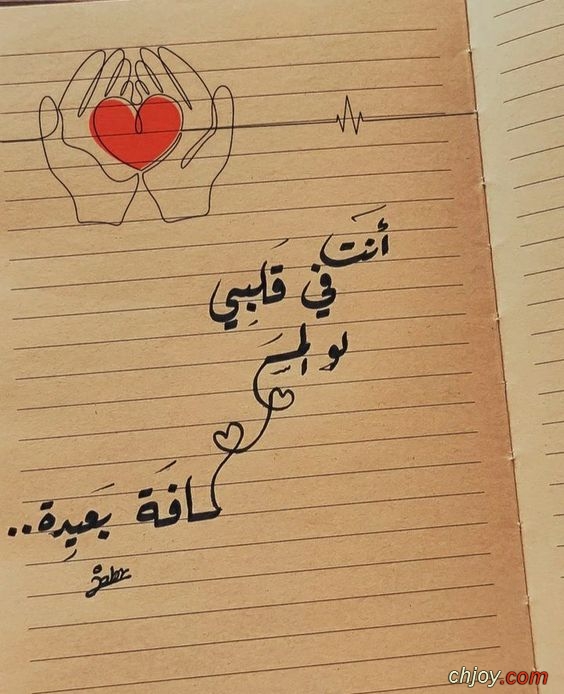 أنتَ
في قَلبِي
لو المسَـ
ـافَة بَعيِدة..
Jabr
chjoy.com